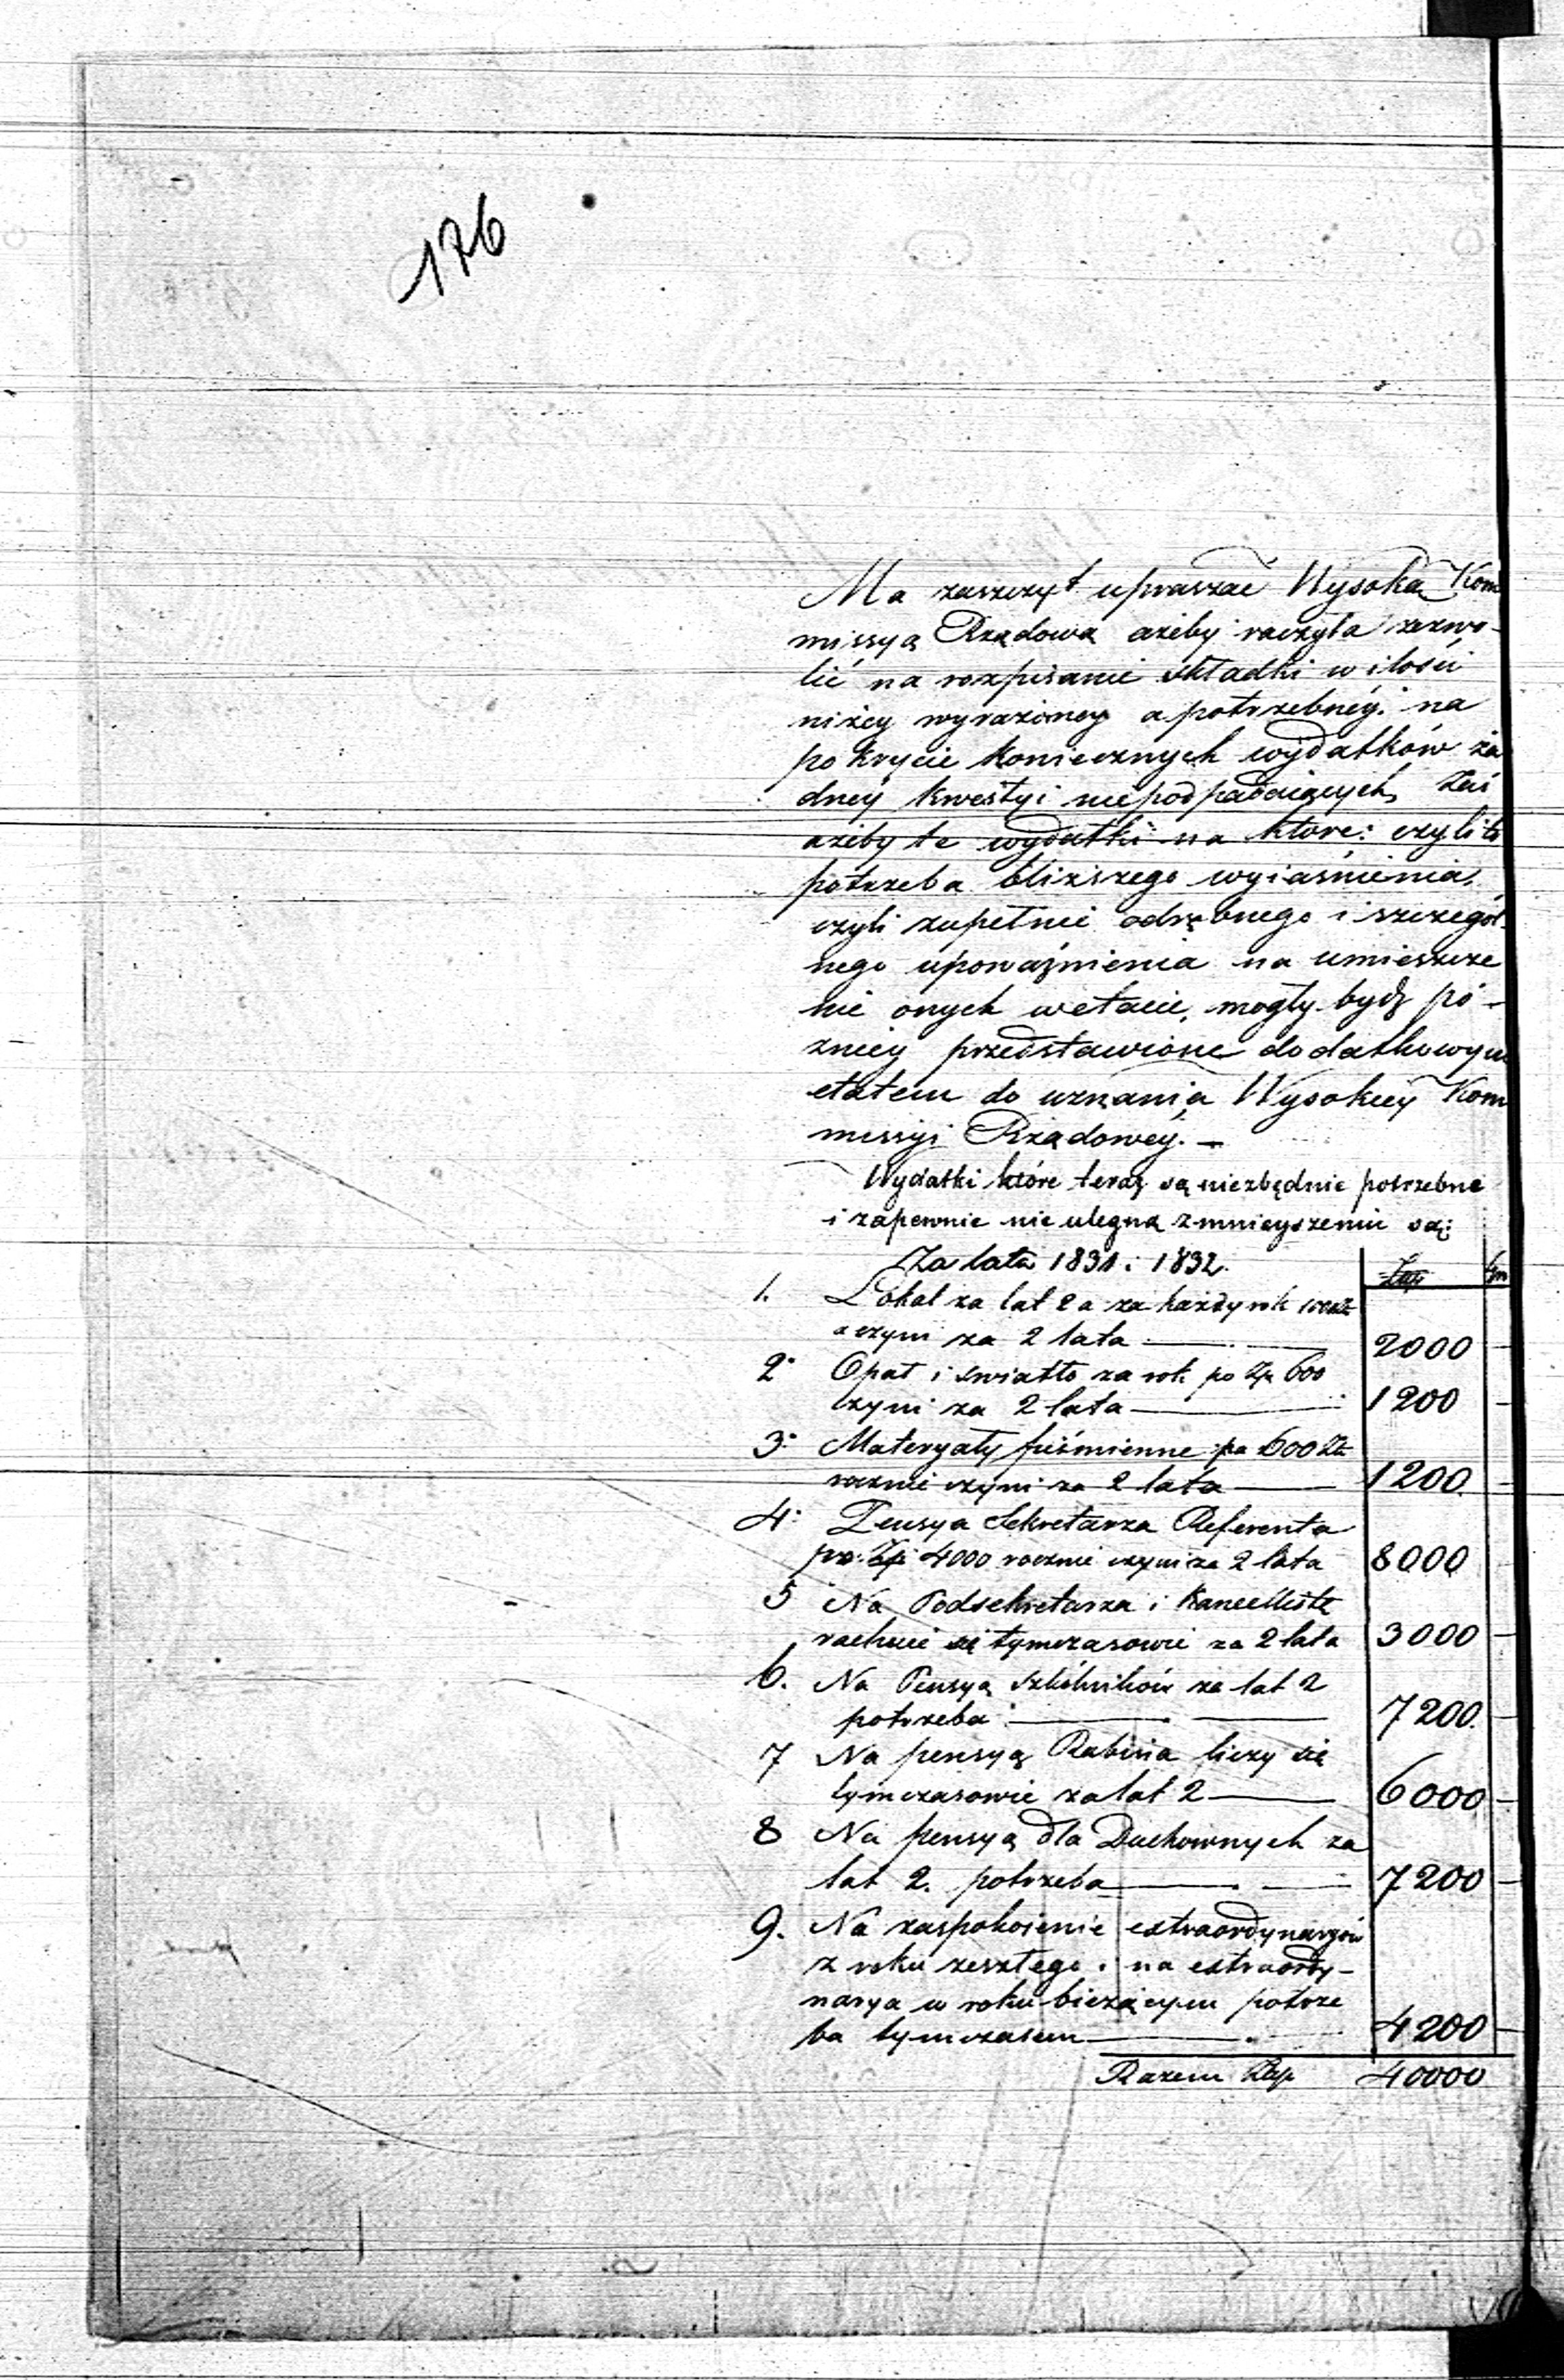 176
Ma zaszczyt upraszać Wysoką Kom
missyą Rządową ażeby raczyła zezwo-
lić na rozpisanie składki w ilości
niżey wyrażoney a potrzebnéy na
pokrycie koniecznych wydatków ża
dney kwestyi niepodpadaiących, zaś
ażeby te wydatki na które: czyli to
potrzeba bliższego wyiaśnienia,
czyli zupełnie odrębnego i szczegól-
nego upoważnienia na umieszcze
nie onych w etacie, mogły bydź pó-
zniey przedstawione dodatkowym
etatem do uznania Wysokiey Kom
missyi Rządowéy. —
Wydatki które teraz są niezbędnie potrzebne
i zapewnie nie ulegną zmnieyszeniu są:
Za lata 1831 i 1832. Złp gr
1. Lokal za lat 2 a za każdy rok 1000 Zł
czyni za 2 lata — 2000 —
2. Opał i światło za rok po Złp 600
czyni za 2 lata — 1200 —
3. Materyały piśmienne po 600 Zł
rocznie czyni za 2 lata — 1200 —
4. Pensya Sekretarza Referenta
po Złp 4000 rocznie czyni za 2 lata 8000
5 Na Podsekretarza i Kancellistę
rachuie się tymczasowie za 2 lata 3000 —
6. Na Pensyą szkólników za lat 2
potrzeba — 7200. —
7 Na pensyą Rabina liczy się
tymczasowie za lat 2 — 6000 —
8 Na pensyą dla Duchownych za
lat 2. potrzeba — 7200 —
9. Na zaspokoienie extraordynaryów
z roku zeszłego i na extraordy-
narya w roku bieżącym potrze
ba tymczasem — 4200 —
Razem Złp 40000